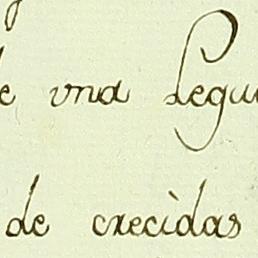 de una Legu
de crecidas